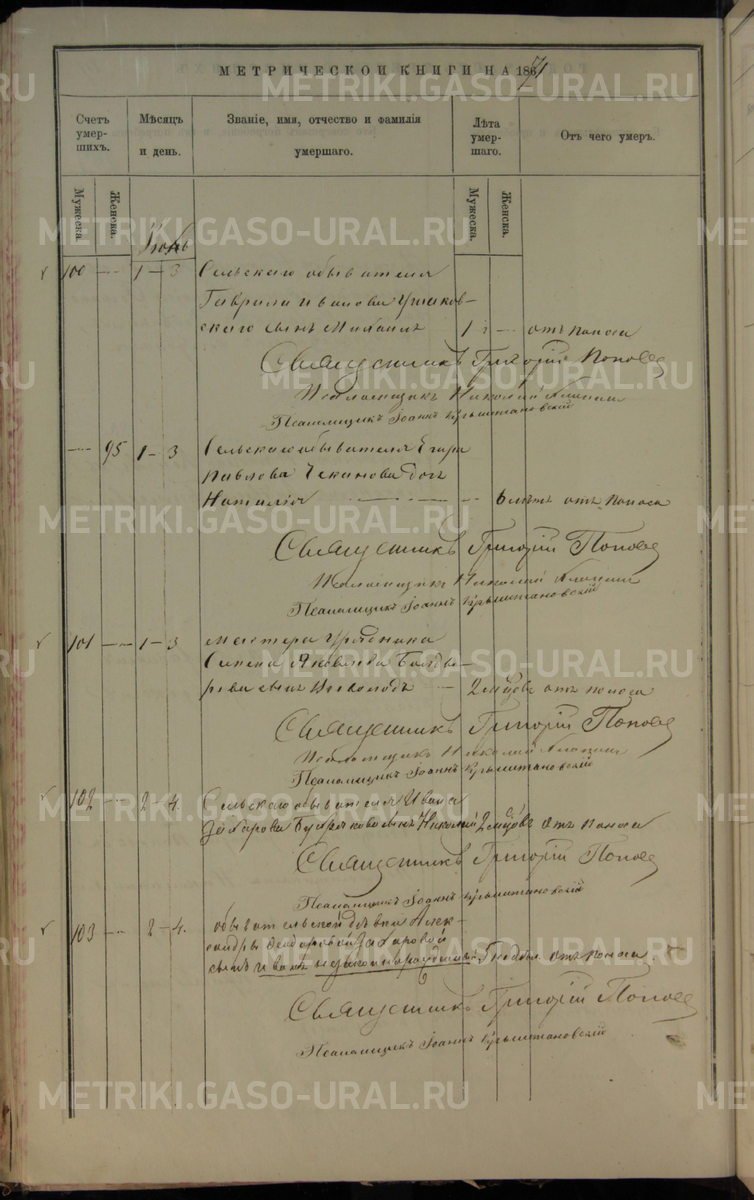 МЕТРИЧЕСКОЙ КНИГИ НА 1867
Счетъ умершихъ.
Мѣсяцъ и день.
Званіе, имя, отчество и фамилія умершаго.
Лѣта умершаго.
Отъ чего умеръ.
Мужеска.
Женска.
Мужеска.
Женска.
100 1-3 Сельскаго обывателя
Гаврила Иванова Ушаков-
скаго сынъ Михаилъ 1 отъ поноса
Священникъ Григорій Поповъ
Псаломщикъ Николай
Псаломщикъ Іоаннъ
95 1-3 Сельскаго обывателя Егора
Павлова Чеканова дочь
Наталія отъ поноса
Священникъ Григорій Поповъ
Псаломщикъ Николай
Псаломщикъ Іоаннъ
101 1-3 Мастера Урядника
Яковлева
сынъ 2 отъ поноса
Священникъ Григорій Поповъ
Псаломщикъ Николай
Псаломщикъ Іоаннъ
102 2-4 Сельскаго обывателя Ивана
Захарова сынъ Николай 2 отъ поноса
Священникъ Григорій Поповъ
Псаломщикъ Іоаннъ
103 2-4. обывательской дѣвки Алек-
сандры Ѳеодоровой Захаровой
сынъ Иванъ незаконнорожденный отъ поноса
Священникъ Григорій Поповъ
Псаломщикъ Іоаннъ
METRIKI.GASO-URAL.RU